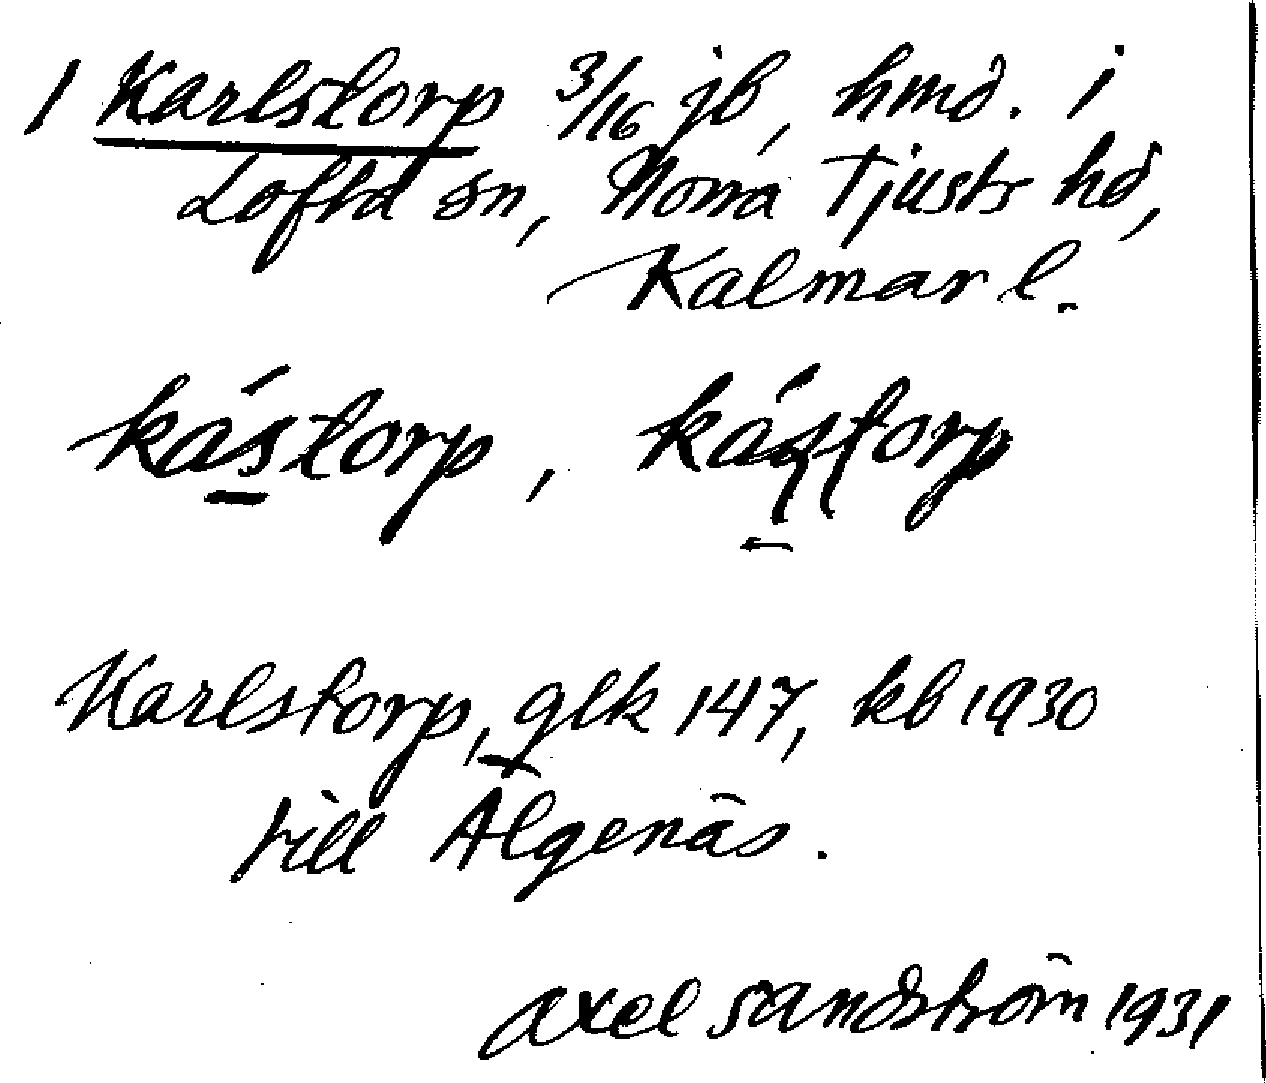 1 Karlstorp 3/16 jb, hmd. i
Lofta sn, Norra Tjusts hd,
Kalmar l.
kástorp, káʂʈorp
Karlstorp, glk 147, kb 1930
till Älgenäs.
Axel Sandström 1931